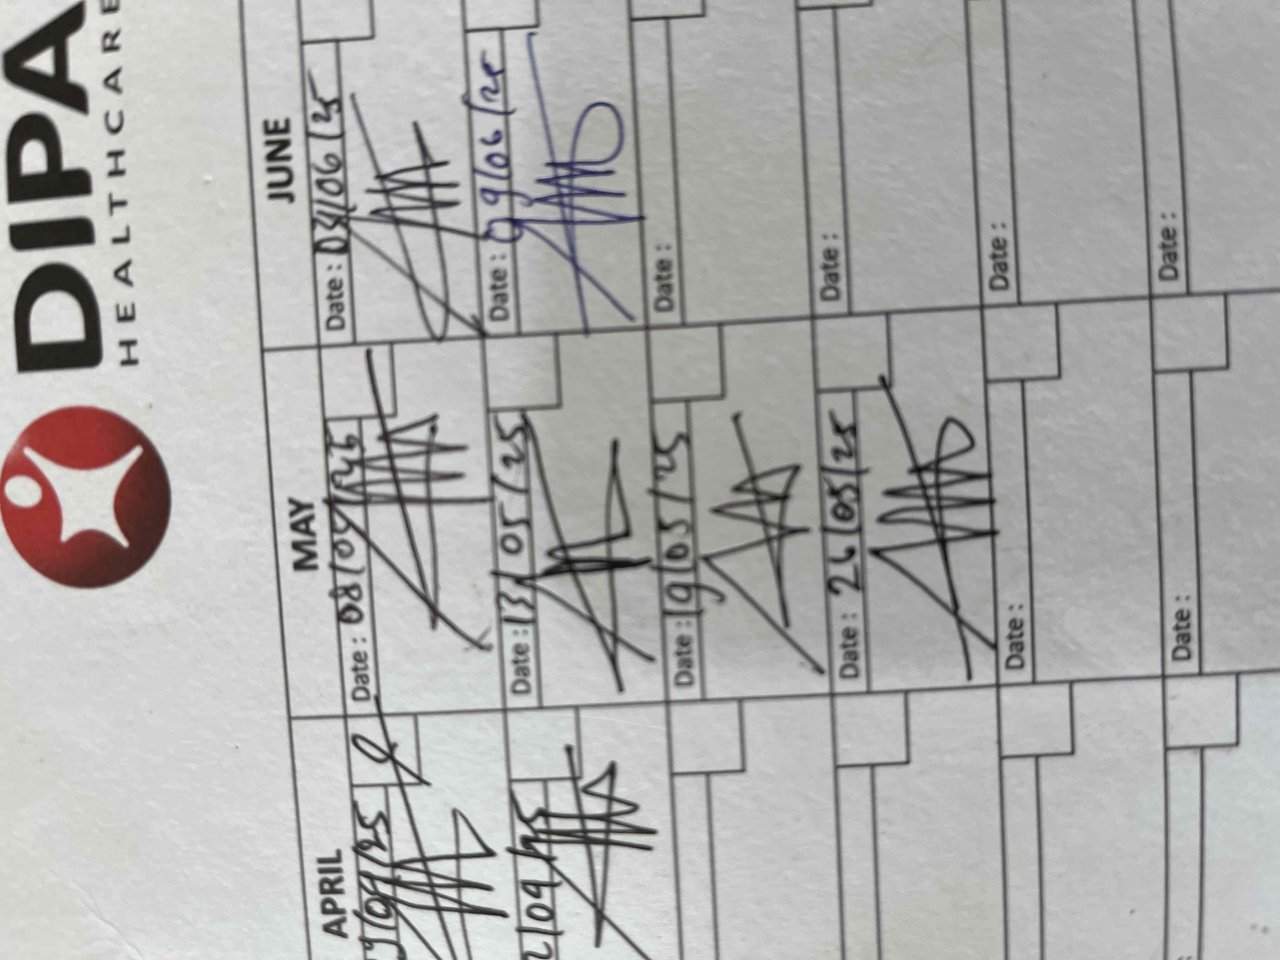 DIPA
HEALTHCARE
APRIL
MAY
JUNE
Date : 08/05/25
Date : 03/06/25
2/04/25
Date : 13/05/25
Date : 09/06/25
Date : 19/05/25
Date :
Date : 26/05/25
Date :
Date :
Date :
Date :
Date :